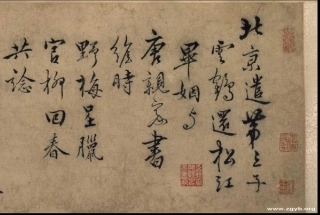 北京遣第三子
雲鶴還松江
畢姻與
唐親家書
繪時
野梅呈臘
官柳回春
共諗
www.zgyh.org